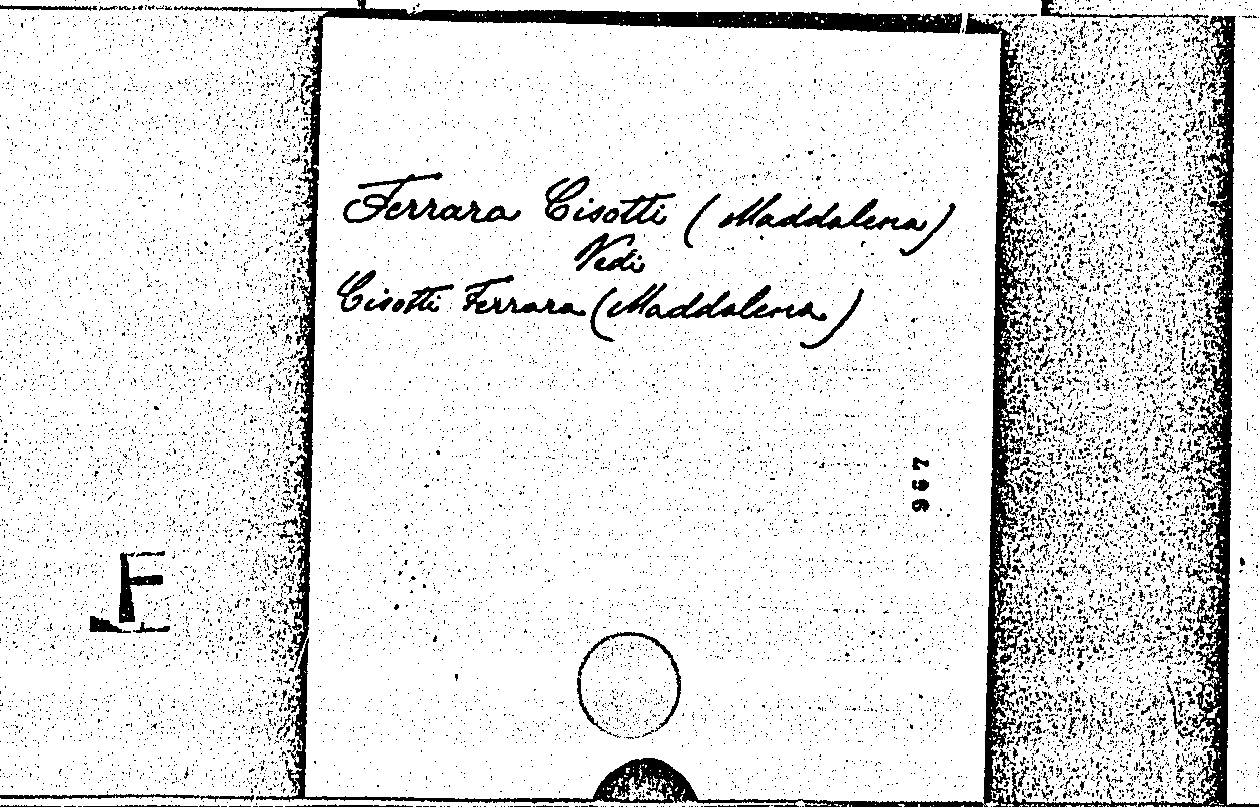 Ferrara Cisotti (Maddalena)
Vedi
Cisotti Ferrara (Maddalena)
967
F